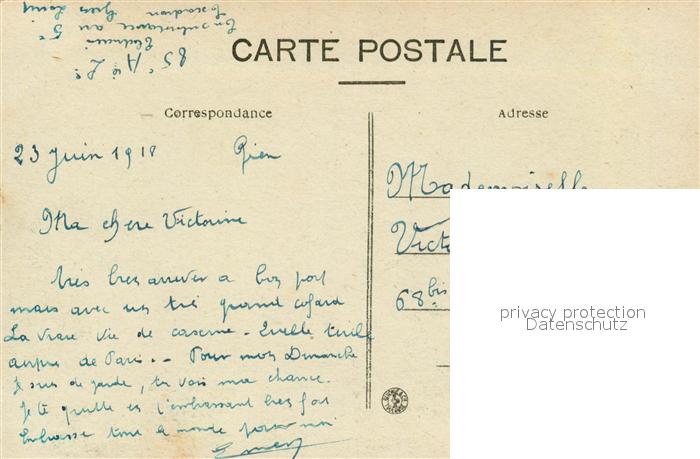 CARTE POSTALE
Correspondance
Adresse
85e
en subsistance au 5e
23 Juin 1918 Gien
Ma chere Victorine
très bien arriver a bon port
mais avec un très grand cafard
La vraie vie de caserne - Quelle tuile
aupres de Paris. - Pour mon Dimanche
Je suis de garde, tu vois ma chance.
Je te quitte en t'embrassant bien fort
Embrasse tout le monde pour moi
Mademoiselle
Vict
68 bis
privacy protection
Datenschutz